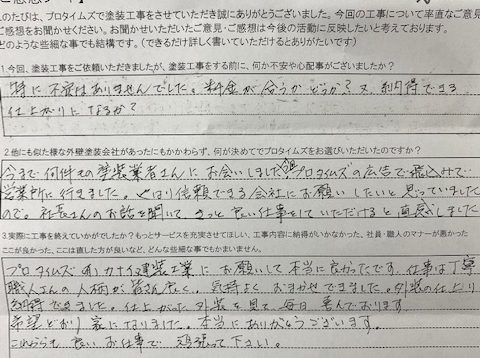 このたびは、プロタイムズで塗装工事をさせていただき誠にありがとうございました。今回の工事について率直なご意見
ご感想をお聞かせください。お聞かせいただいたご意見・ご感想は今後の活動に反映したいと考えております。
どのような些細な事でも結構です。(できるだけ詳しく書いていただけるとありがたいです)
1.今回、塗装工事をご依頼いただきましたが、塗装工事をする前に、何か不安や心配事がございましたか?
特に不安はありませんでした。料金が合うかどうか?又、納得できる
仕上がりになるか?
2.他にも似た様な外壁塗装会社があったにもかかわらず、何が決めてでプロタイムズをお選びいただいたのですか?
今まで何件もの塗装業者さんにお会いしましたが プロタイムズの広告で飛込みで
営業所に行きました。やはり信頼できる会社にお願いしたいと思っていました
ので。社長さんのお話を聞いて、きっと良い仕事をしていただけると直感しました
3.実際に工事を終えていかがでしたか?もっとサービスを充実させてほしい、工事内容に納得がいかなかった、社員・職人のマナーが悪かった
ここが良かった、ここは直した方が良いなど、どんな些細な事でもかまいません。
プロタイムズ カナイ建装工業にお願いして本当に良かったです。仕事は丁寧
職人さんの人柄が皆さん良く、気持よくおまかせできました。外装の仕上り
納得できました。仕上がった外装を見て、毎日喜んでおります
希望どおり家になりました。本当にありがとうございます。
これからも良いお仕事で頑張って下さい。